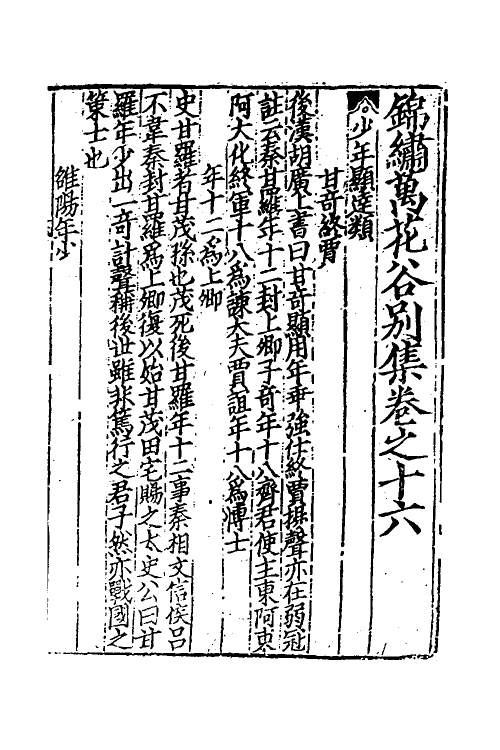 錦繡萬花谷別集卷之十六
少年顯達類
甘竒終賈
後漢胡廣上書曰甘竒顯用年乖強仕終賈揚聲亦在弱冠
註云秦甘羅年十二封上卿子竒年十八齊君使主東阿東
阿大化終軍十八爲諫大夫賈誼年十八爲博士
年十二爲上卿
史甘羅者甘茂孫也茂死後甘羅年十二事秦相文信侯吕
不韋秦封甘羅爲上卿復以始甘茂田宅賜之太史公曰甘
羅年少出一竒計聲稱後世雖非篤行之君子然亦戰國之
策士也
雒陽年少